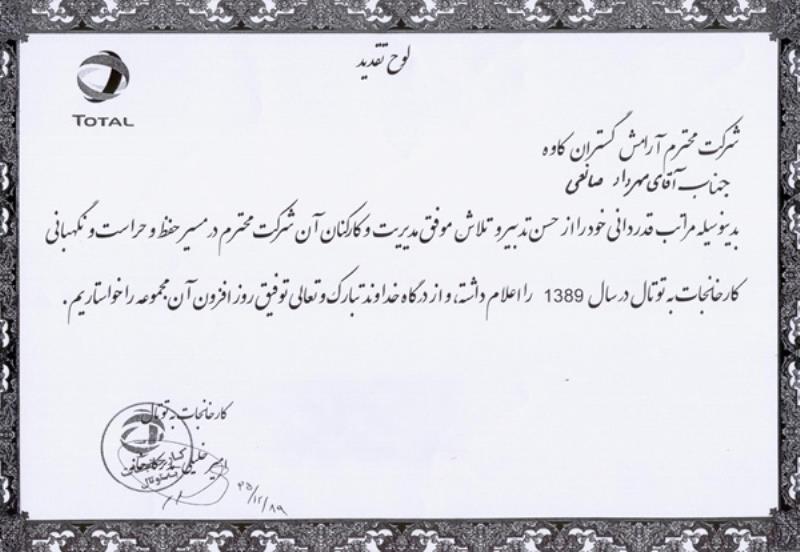 لوح تقدیر
TOTAL
شرکت محترم آرامش گستران کاوه
جناب آقای مهرداد صانعی
بدینوسیله مراتب قدردانی خود را از حسن تدبیر و تلاش موفق مدیریت و کارکنان آن شرکت محترم در مسیر حفظ و حراست و نگهبانی
کارخانجات به توتال در سال 1389 را اعلام داشته و از درگاه خداوند تبارک و تعالی توفیق روز افزون آن مجموعه را خواستاریم.
کارخانجات به توتال
امیر خلیلی